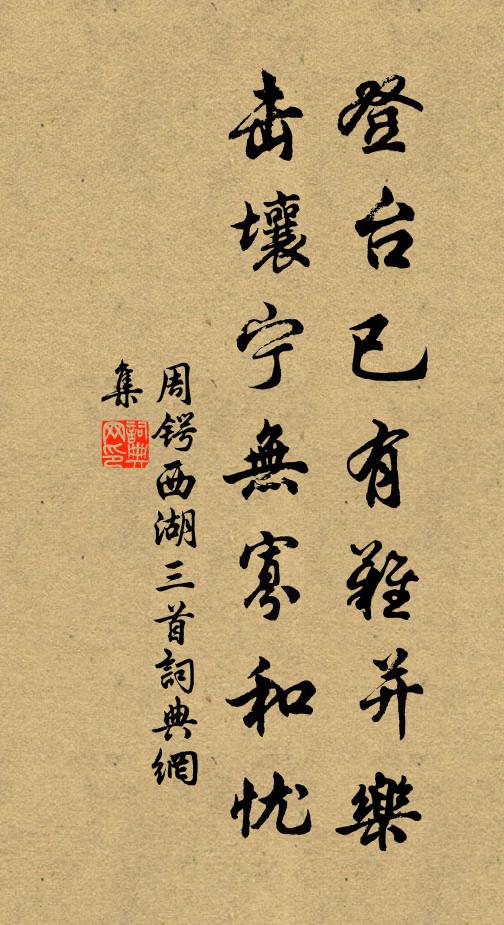 登台已有難并樂
击壤宁無寡和忧
周锷西湖三首詞典網
集
詞典网印